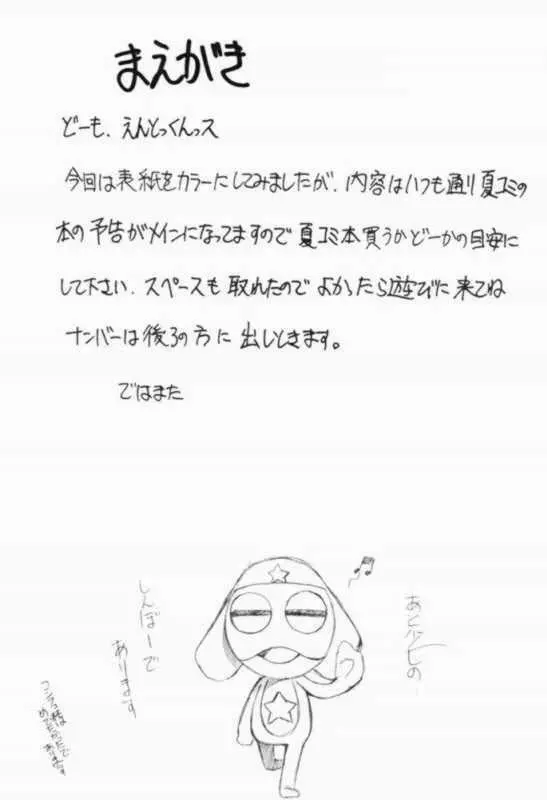 まえがき
どーも、えんとっくんっス
今回は表紙をカラーにしてみましたが、内容はいつも通り夏コミの
本の予告がメインになってますので夏コミ本買うかどーかの目安に
して下さい。スペースも取れたのでよかったら遊びに来てね
ナンバーは後ろの方に出しときます。
ではまた
あと少しの
しんぼーで
あります